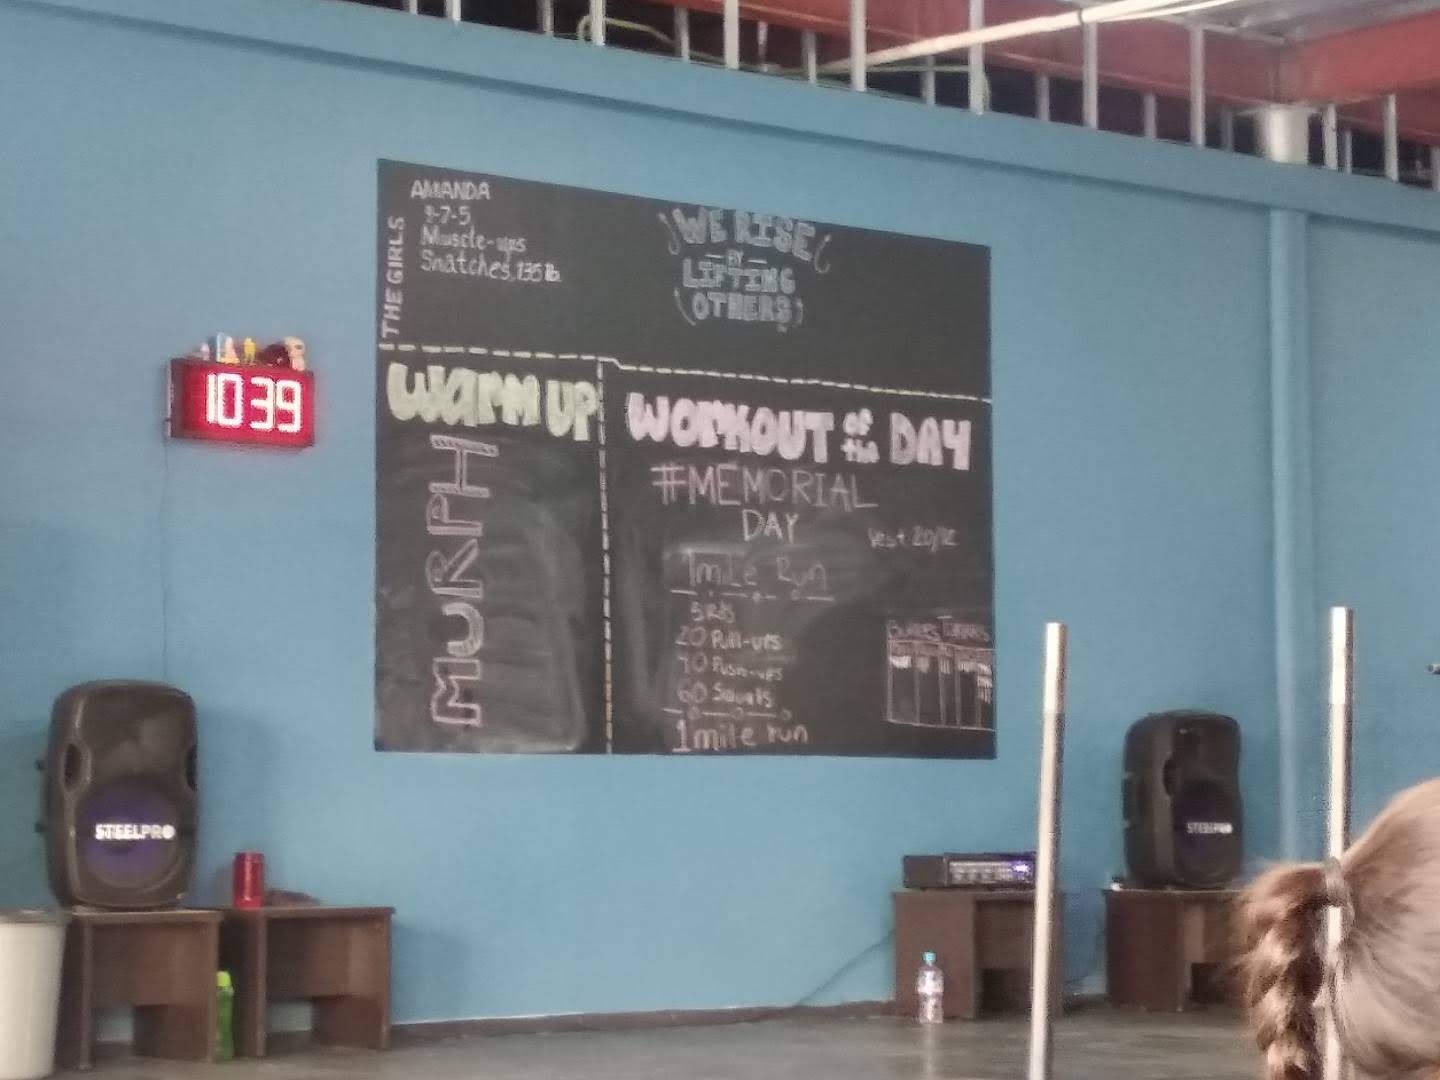 THE GIRLS
AMANDA
9-7-5
Muscle-ups
Snatches, 135 lb
WE RISE
BY
LIFTING
OTHERS
10 39
WARM UP
MURPH
WORKOUT of the DAY
#MEMORIAL
DAY
Vest 20/12
1 mile Run
5 Rds
20 Pull-ups
40 Push-ups
60 Squats
1 mile run
STEELPRO
STEELPRO